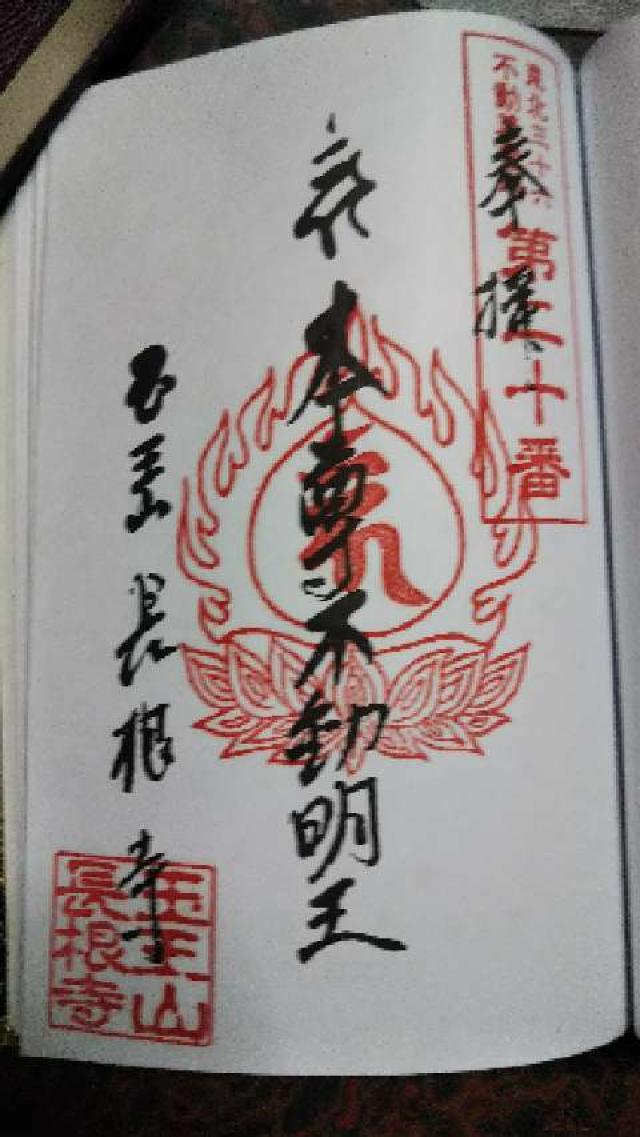 東北三十六
不動尊
第二十番
奉拝
本尊不動明王
玉王山 長根寺
玉王山
長根寺